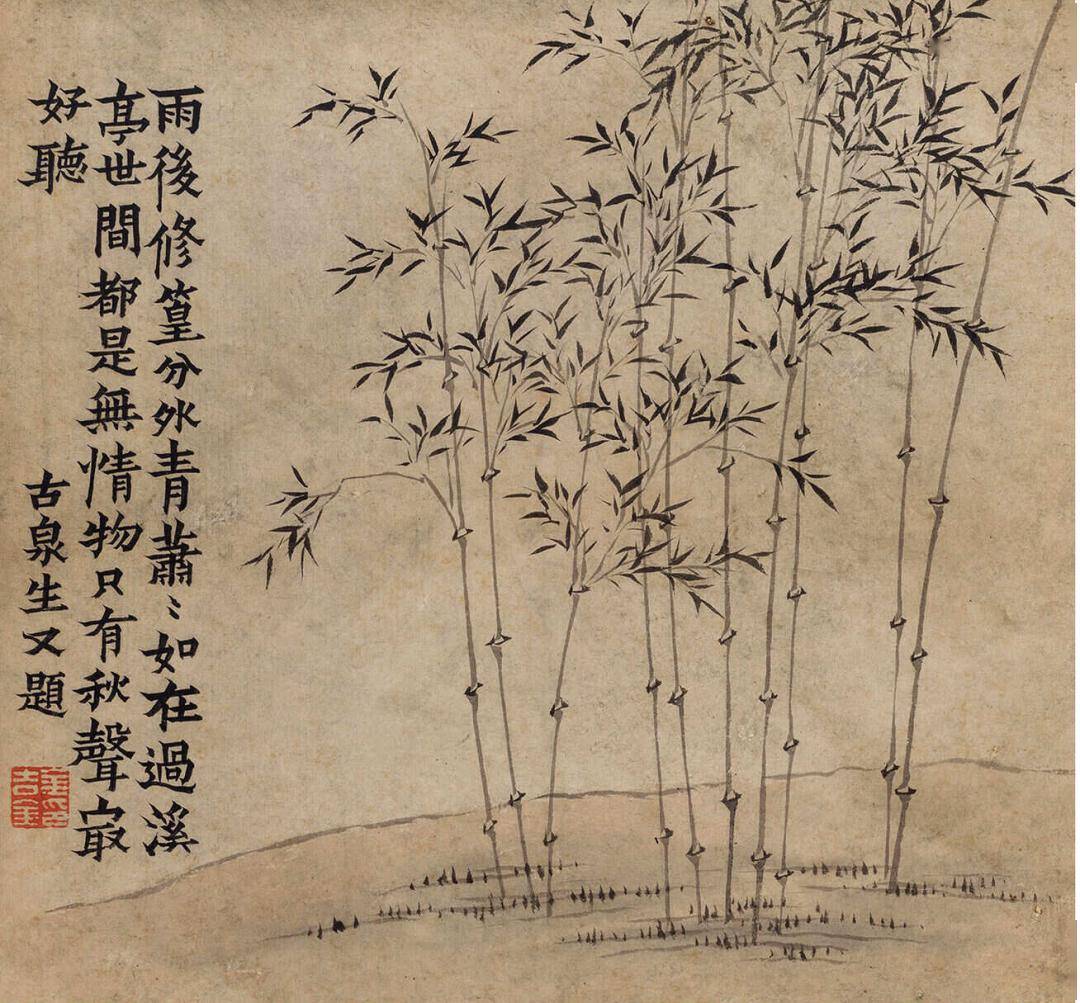 雨後修篁分外青蕭〻如在過溪
亭世間都是無情物只有秋聲㝡
好聽
古泉生又題
金吉金印